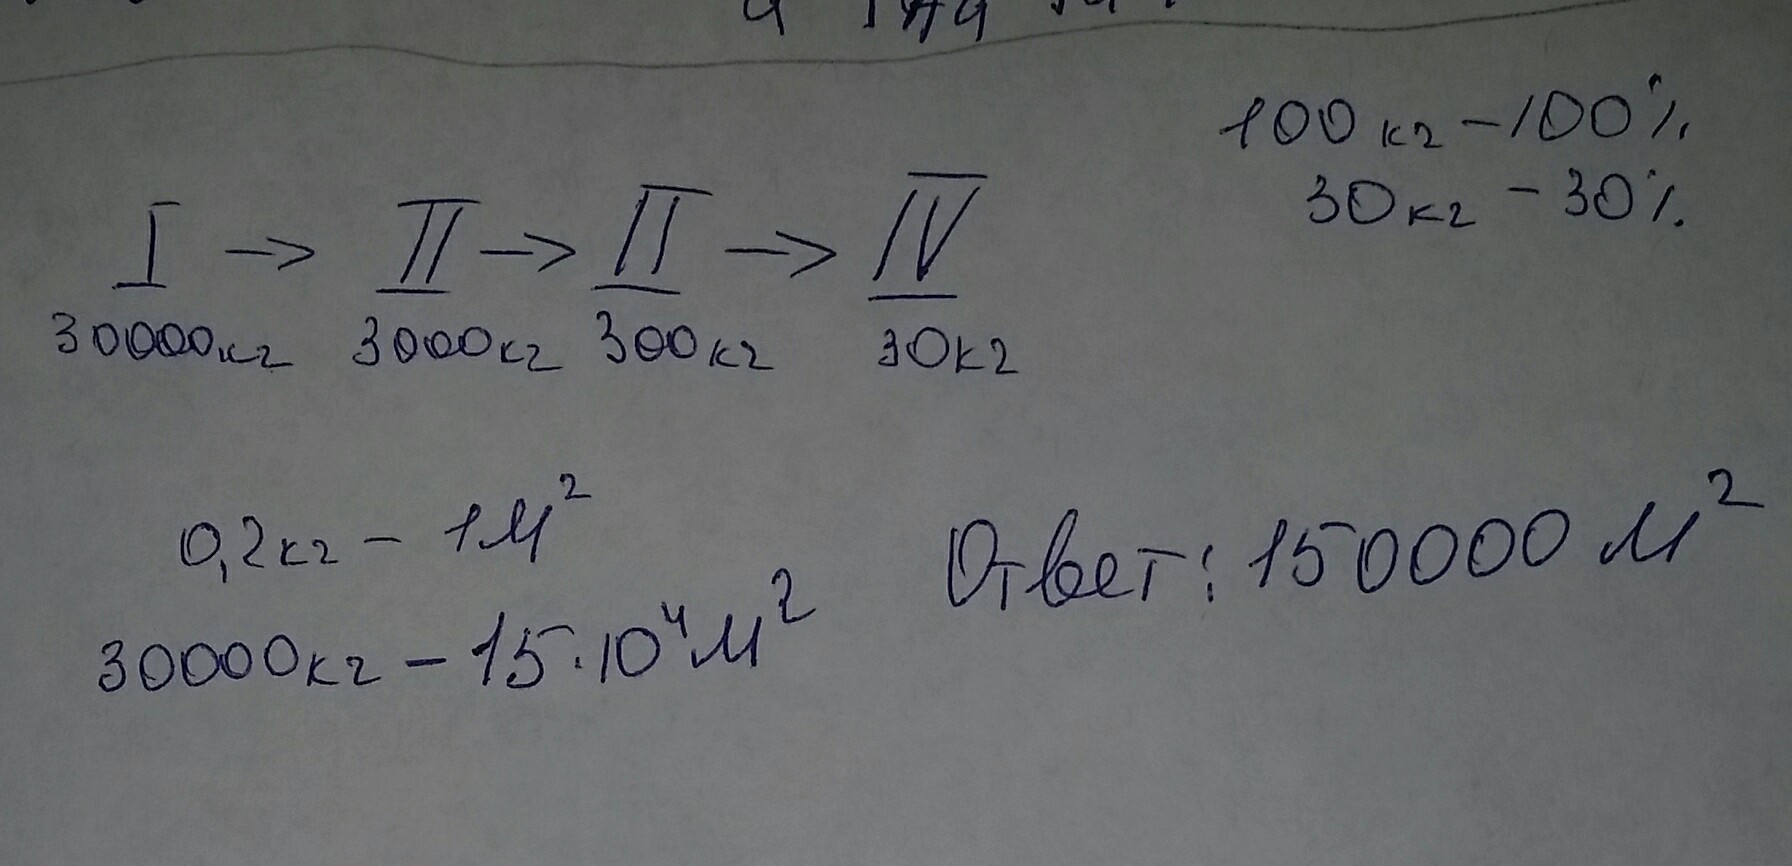 100кг - 100%
30кг - 30%
I → II → II → IV
30000кг 3000кг 300кг 30кг
0,2кг - 1м²
30000кг - 15·10⁴м²
Ответ: 150000 м²